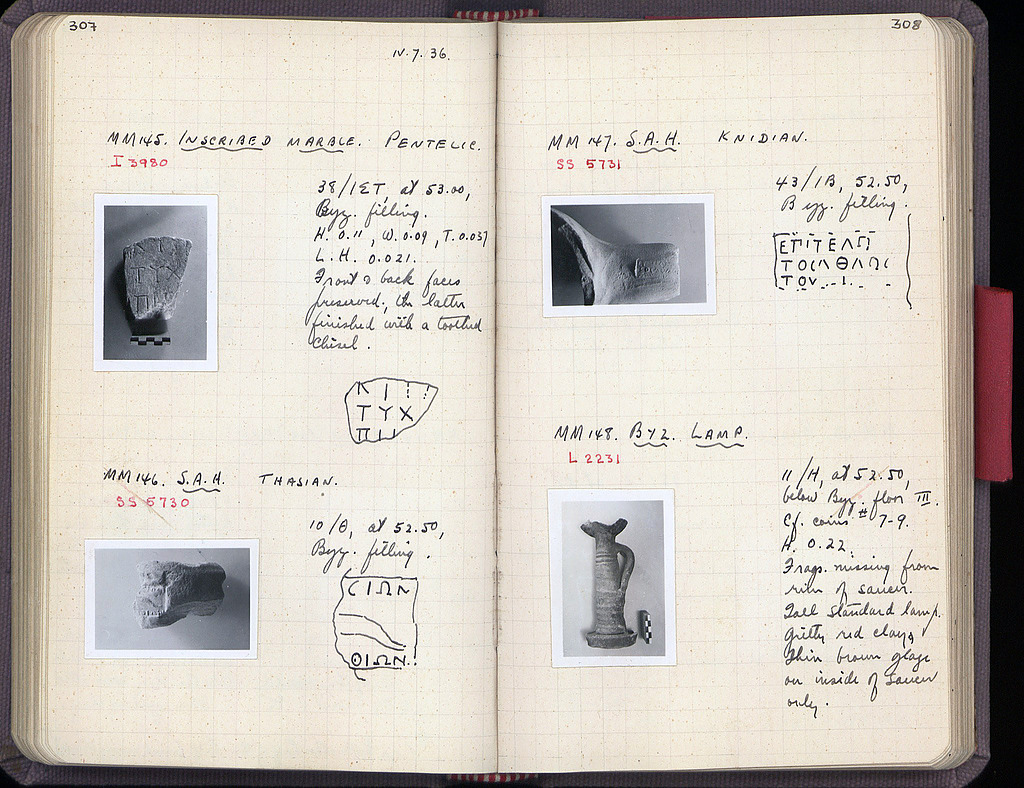 307
IV.7.36.
MM145. INSCRIBED MARBLE. PENTELIC.
I 3980
38/ΙΣΤ, at 53.00,
Byz. filling.
H. 0.11, W. 0.09, T. 0.037
L.H. 0.021.
Front & back faces
preserved, the latter
finished with a toothed
chisel.
ΤΥΧ
MM146. S.A.H. THASIAN.
SS 5730
10/Θ, at 52.50,
Byz. filling.
ΘΙΩΝ
308
MM147. S.A.H. KNIDIAN.
SS 5731
43/ΙΒ, 52.50,
Byz. filling.
MM148. BYZ. LAMP.
L 2231
11/Η, at 52.50,
below Byz. floor III.
Cf. coins #7-9.
H. 0.22.
Frags. missing from
rim of saucer.
Tall standard lamp.
Gritty red clay;
thin brown glaze
on inside of saucer
only.